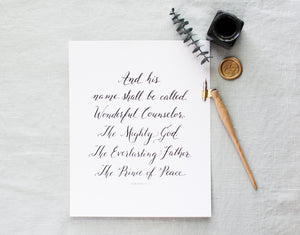 And his
name shall be called
Wonderful Counselor,
The Mighty God
The Everlasting Father
The Prince of Peace